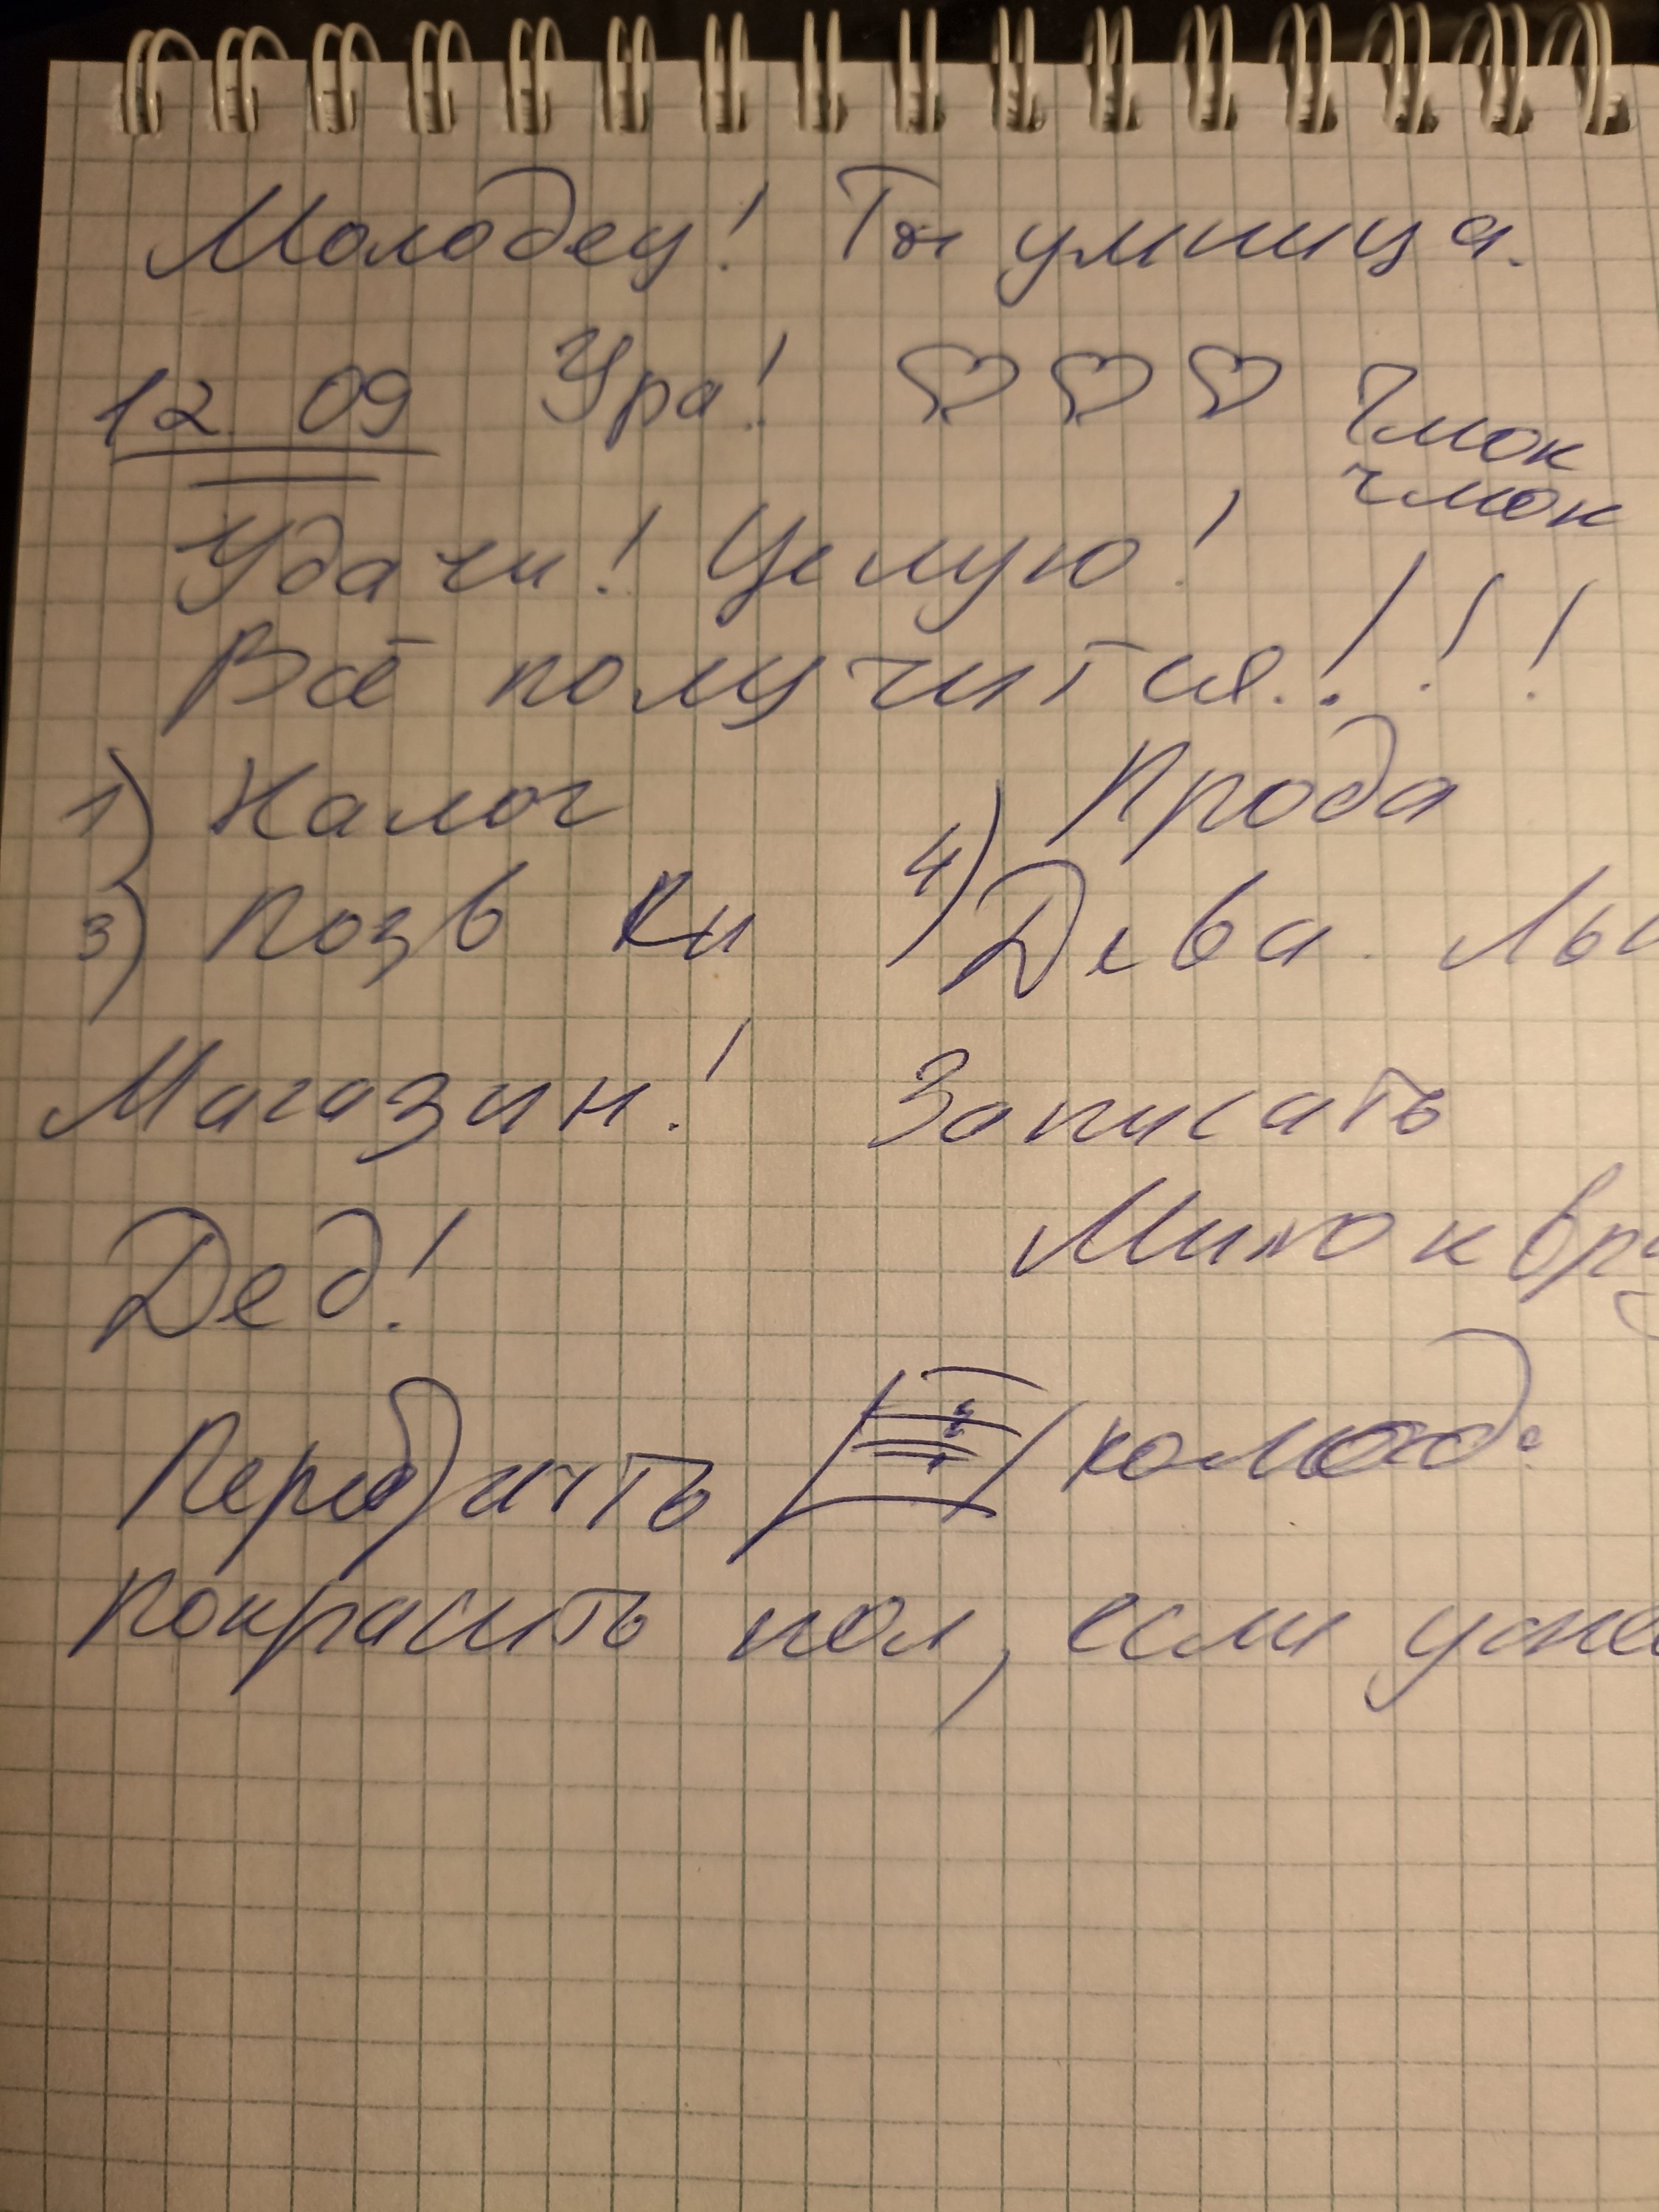 Молодец! Ты умница.
12 09 Ура! ♡ ♡ ♡ Чмок
чмок
Удачи! Целую!
Всё получится!!!
1) Налог
Прода
3) Позв Ки 4) Дева.
Магазин! Записать
Дед! к
Перебить холод.
Покрасить пол, если